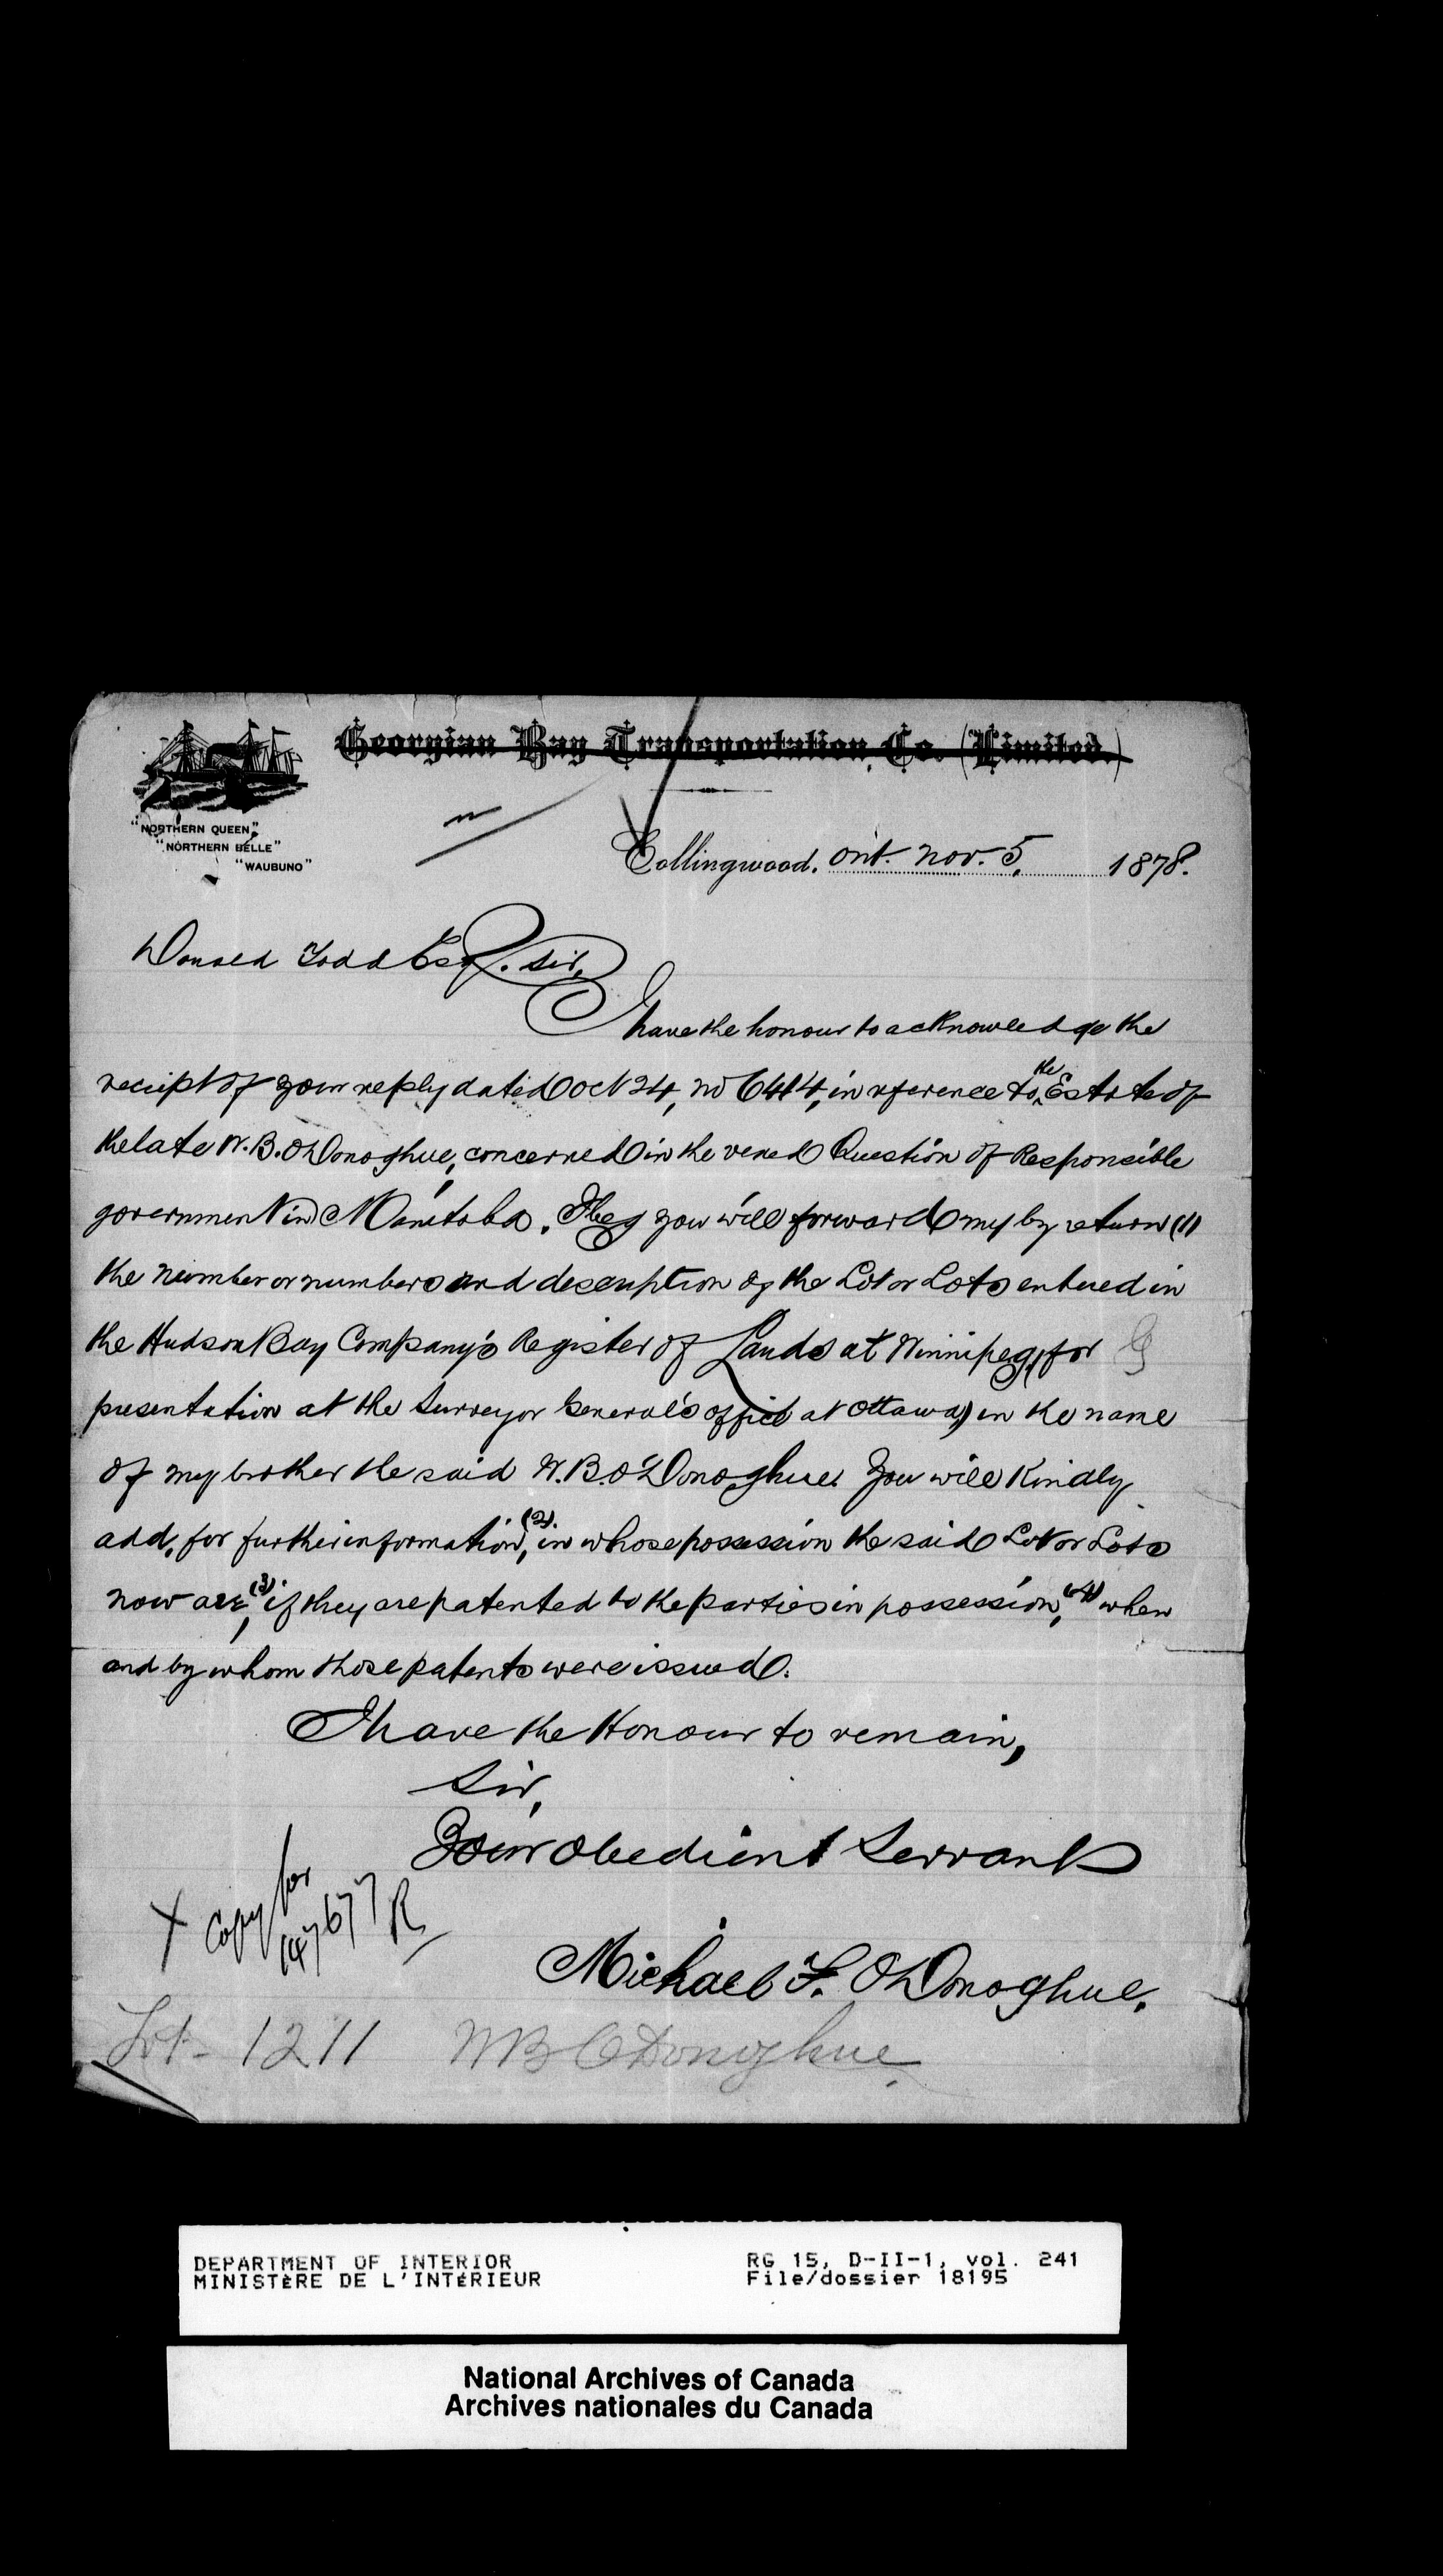 Georgian Bay Transportation Co. (Limited.)
"NORTHERN QUEEN"
"NORTHERN BELLE"
"WAUBUNO"
Collingwood. Ont. Nov. 5, 1878.
Donald Todd Esq. Sir,
I have the honour to acknowledge the
receipt of your reply dated Oct 24, no 6414, in reference to the Estate of
the late W. B. O'Donoghue, concerned in the vexed Question of Responsible
government in Manitoba. I beg you will forward my by return (1)
the number or numbers and description of the Lot or Lots entered in
the Hudson Bay Company's Register of Lands at Winnipeg, (for
presentation at the Surveyor General's office at Ottawa) in the name
of my brother the said W. B. O'Donoghue. You will Kindly
add, for further information, (2). in whose possession the said Lot or Lots
now are, (3). if they are patented to the parties in possession, (4) when
and by whom those patents were issued.
I have the Honour to remain,
Sir,
Your Obedient Servant
Michael F. O'Donoghue.
X Copy for
147677 R
Lot - 1211 WB O'Donoghue
DEPARTMENT OF INTERIOR RG 15, D-II-1, vol. 241
MINISTÈRE DE L'INTÉRIEUR File/dossier 18195
National Archives of Canada
Archives nationales du Canada